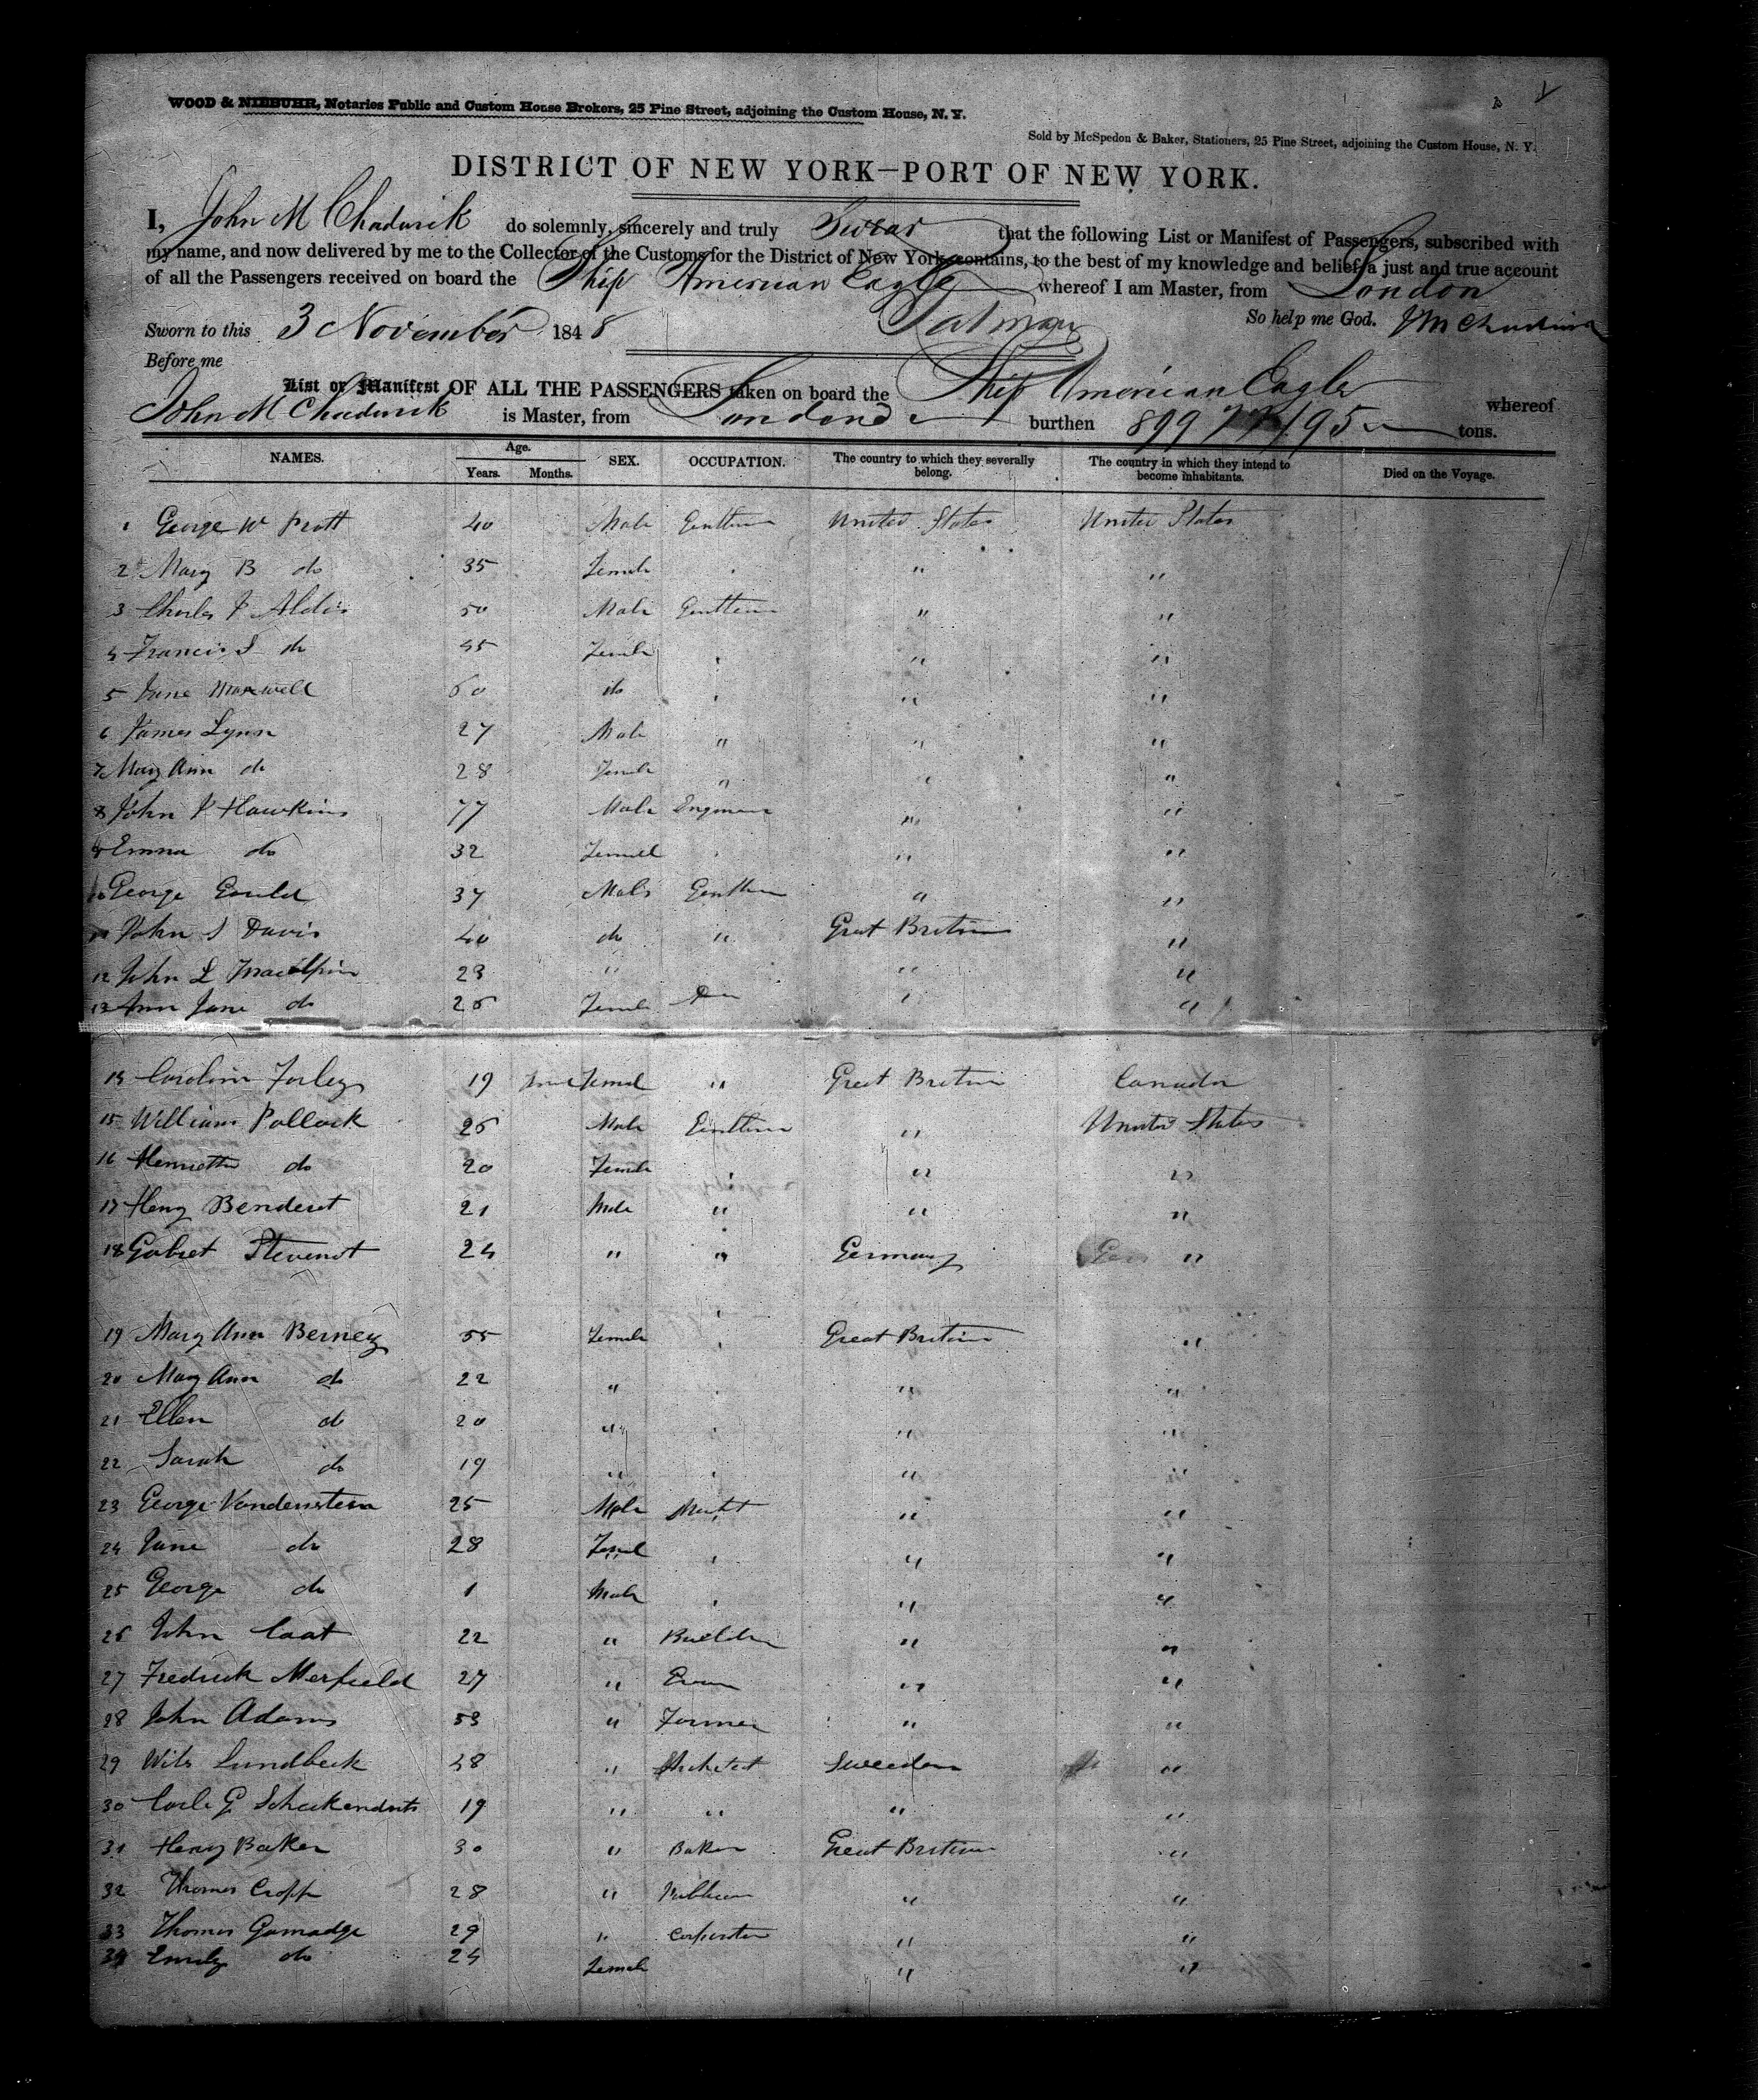 WOOD & NIEBUHR, Notaries Public and Custom House Brokers, 25 Pine Street, adjoining the Custom House, N. Y.
Sold by McSpedon & Baker, Stationers, 25 Pine Street, adjoining the Custom House, N. Y.
DISTRICT OF NEW YORK—PORT OF NEW YORK.
I, John M Chadwick do solemnly, sincerely and truly Swear that the following List or Manifest of Passengers, subscribed with
my name, and now delivered by me to the Collector of the Customs for the District of New York, contains, to the best of my knowledge and belief, a just and true account
of all the Passengers received on board the Ship American Eagle whereof I am Master, from London
Sworn to this 3 November 1848 So help me God. J M Chadwick
Before me
List or Manifest OF ALL THE PASSENGERS taken on board the Ship American Eagle whereof
John M Chadwick is Master, from London burthen 899 /95 tons.
NAMES. Age. Years. Months. SEX. OCCUPATION. The country to which they severally belong. The country in which they intend to become inhabitants. Died on the Voyage.
1 George W Pratt 40 Male Gentleman United States United States
2 Mary B do 35 Female " "
3 Charles P Aldis 50 Male Gentleman " "
4 Francis S do 45 Female " "
5 Jane Maxwell 60 do " "
6 James Lynn 27 Male " " "
7 Mary Ann do 28 Female " " "
8 John P Hawkins 77 Male Engineer " "
9 Emma do 32 Female " "
10 George Gould 37 Male Gentleman " "
11 John S Davis 40 do " Great Britain "
12 John L Macalpin 23 " " "
13 Ann Jane do 26 Female " "
14 Caroline Forley 19 Female " Great Britain Canada
15 William Pollock 26 Male Gentleman " United States
16 Henrietta do 20 Female " "
17 Henry Benderet 21 Male " " "
18 Gabriet Stevenot 24 " " Germany "
19 Mary Ann Berney 55 Female Great Britain "
20 Mary Ann do 22 " " "
21 Ellen do 20 " " "
22 Sarah do 19 " " "
23 George Vandenstein 25 Male Mercht " "
24 Jane do 28 Femal " "
25 George do 1 Male " "
26 John Coat 22 " Builder " "
27 Fredrick Merfield 27 " " "
28 John Adams 53 " Farmer " "
29 Wils Lundbeck 48 " Architect Sweeden "
30 Carle G 19 " " " "
31 Henry Baker 30 " Baker Great Britain "
32 Thomas Cropp 28 " Publican " "
33 Thomas Gamadge 29 " Carpenter " "
34 Emily do 24 Female " "